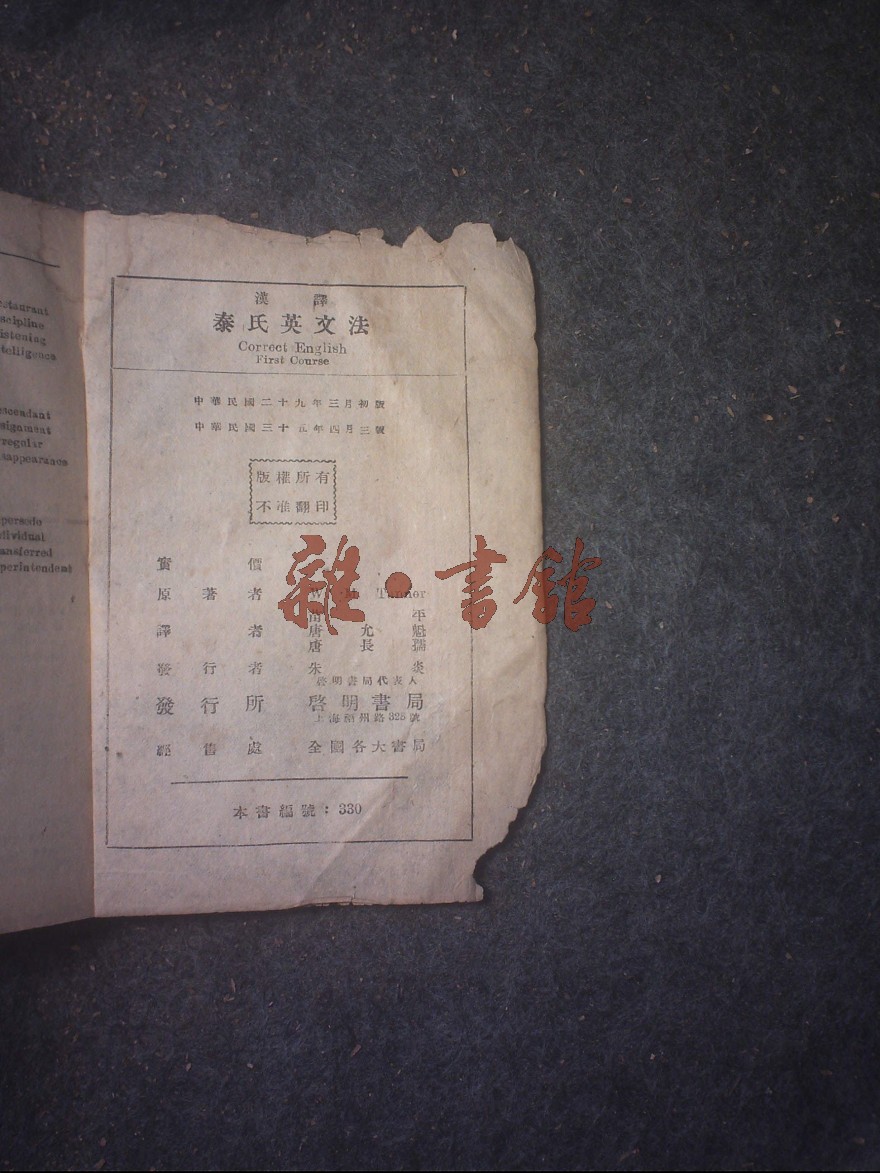 restaurant
scipline
istening
telligence
escendant
signment
rregular
sappearance
persede
dividual
ansferred
perintendent
漢譯
泰氏英文法
Correct English
First Course
中華民國二十九年三月初版
中華民國三十五年四月三號
版權所有
不准翻印
實價
原著者 W. M. Tanner
譯者
平
唐允魁
唐長孺
發行者 朱炎
啓明書局代表人
發行所 啓明書局
上海福州路328號
經售處 全國各大書局
本書編號：330
雜·書館